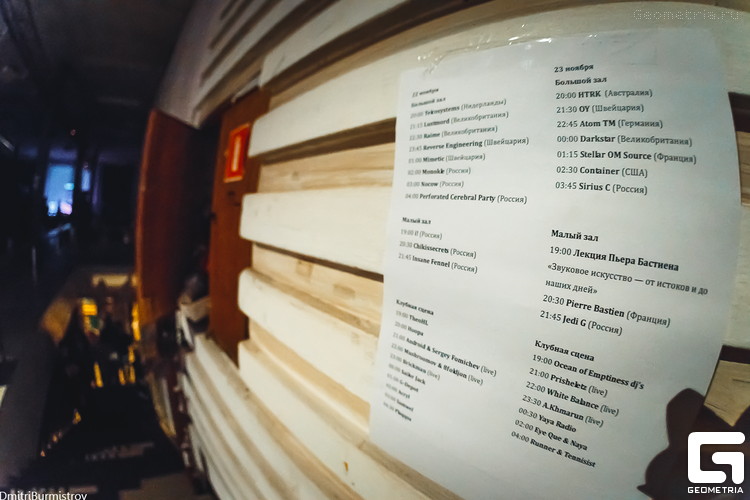 Geometria.ru
22 ноября
Большой зал
20:00 Teknosystems (Нидерланды)
21:15 Lustmord (Великобритания)
Raime (Великобритания)
23:45 Reverse Engineering (Швейцария)
01:00 Mimetic (Швейцария)
02:00 (Россия)
03:00 Nocow (Россия)
04:00 Perforated Cerebral Party (Россия)
Малый зал
19:00 (Россия)
20:30 Chikiss (Россия)
21:45 Insane Fennel (Россия)
Клубная сцена
19:00
20:00
21:00 Android & Sergey Fomichev (live)
Mushrooman & Blokljon (live)
(live)
Jack
23 ноября
Большой зал
20:00 HTRK (Австралия)
21:30 OY (Швейцария)
22:45 Atom TM (Германия)
00:00 Darkstar (Великобритания)
01:15 Stellar OM Source (Франция)
02:30 Container (США)
03:45 Sirius C (Россия)
Малый зал
19:00 Лекция Пьера Бастиена
«Звуковое искусство — от истоков и до
наших дней»
20:30 Pierre Bastien (Франция)
21:45 Jedi G (Россия)
Клубная сцена
19:00 Ocean of Emptiness dj's
21:00 Prisheletz (live)
22:00 White Balance (live)
23:30 A.Khmarun (live)
00:30 Yaya Radio
02:00 Eye Que & Naya
04:00 Runner & Tennisist
DmitriBurmistrov
GEOMETRIA